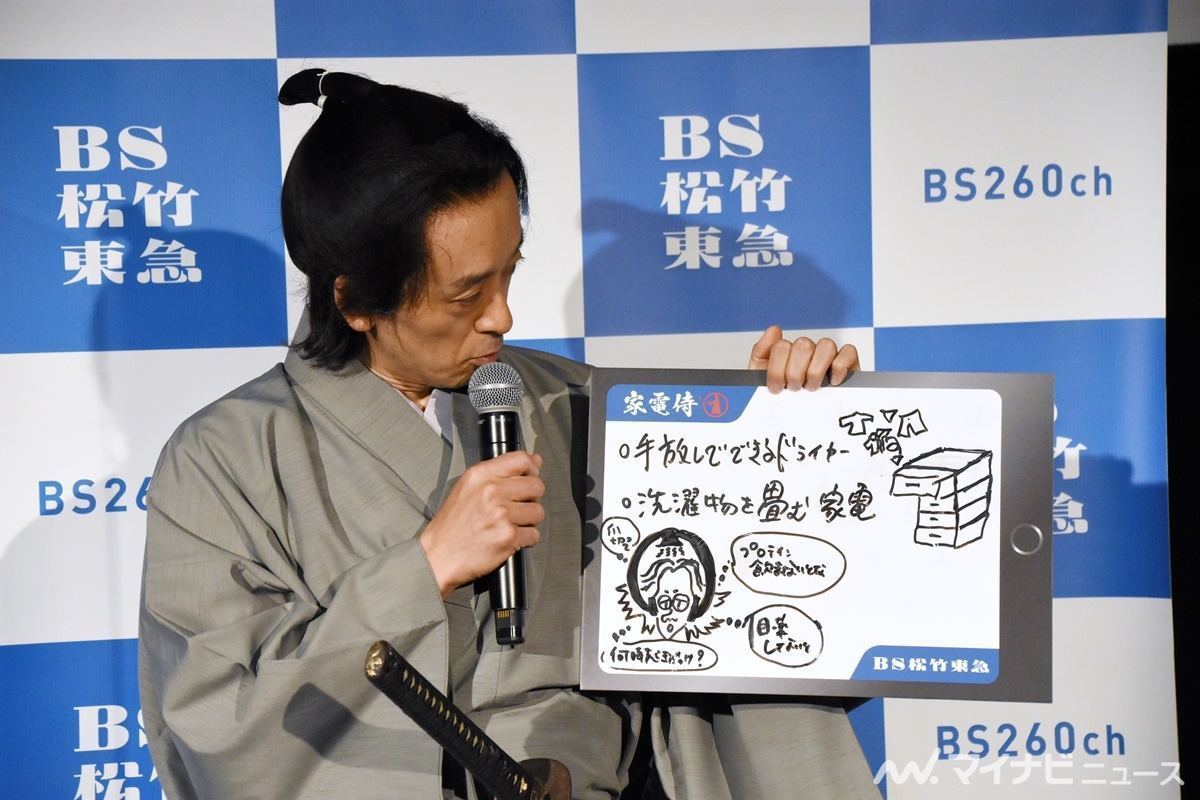 BS
松竹
東急
BS
松竹
東急
BS260ch
家電侍
手放しでできるドライヤー
洗濯物を畳む家電
プロテイン
飲まないとな
目薬
しないと
何時からだっけ?
BS松竹東急
BS26
竹
急
BS
松竹
BS260ch
マイナビニュース